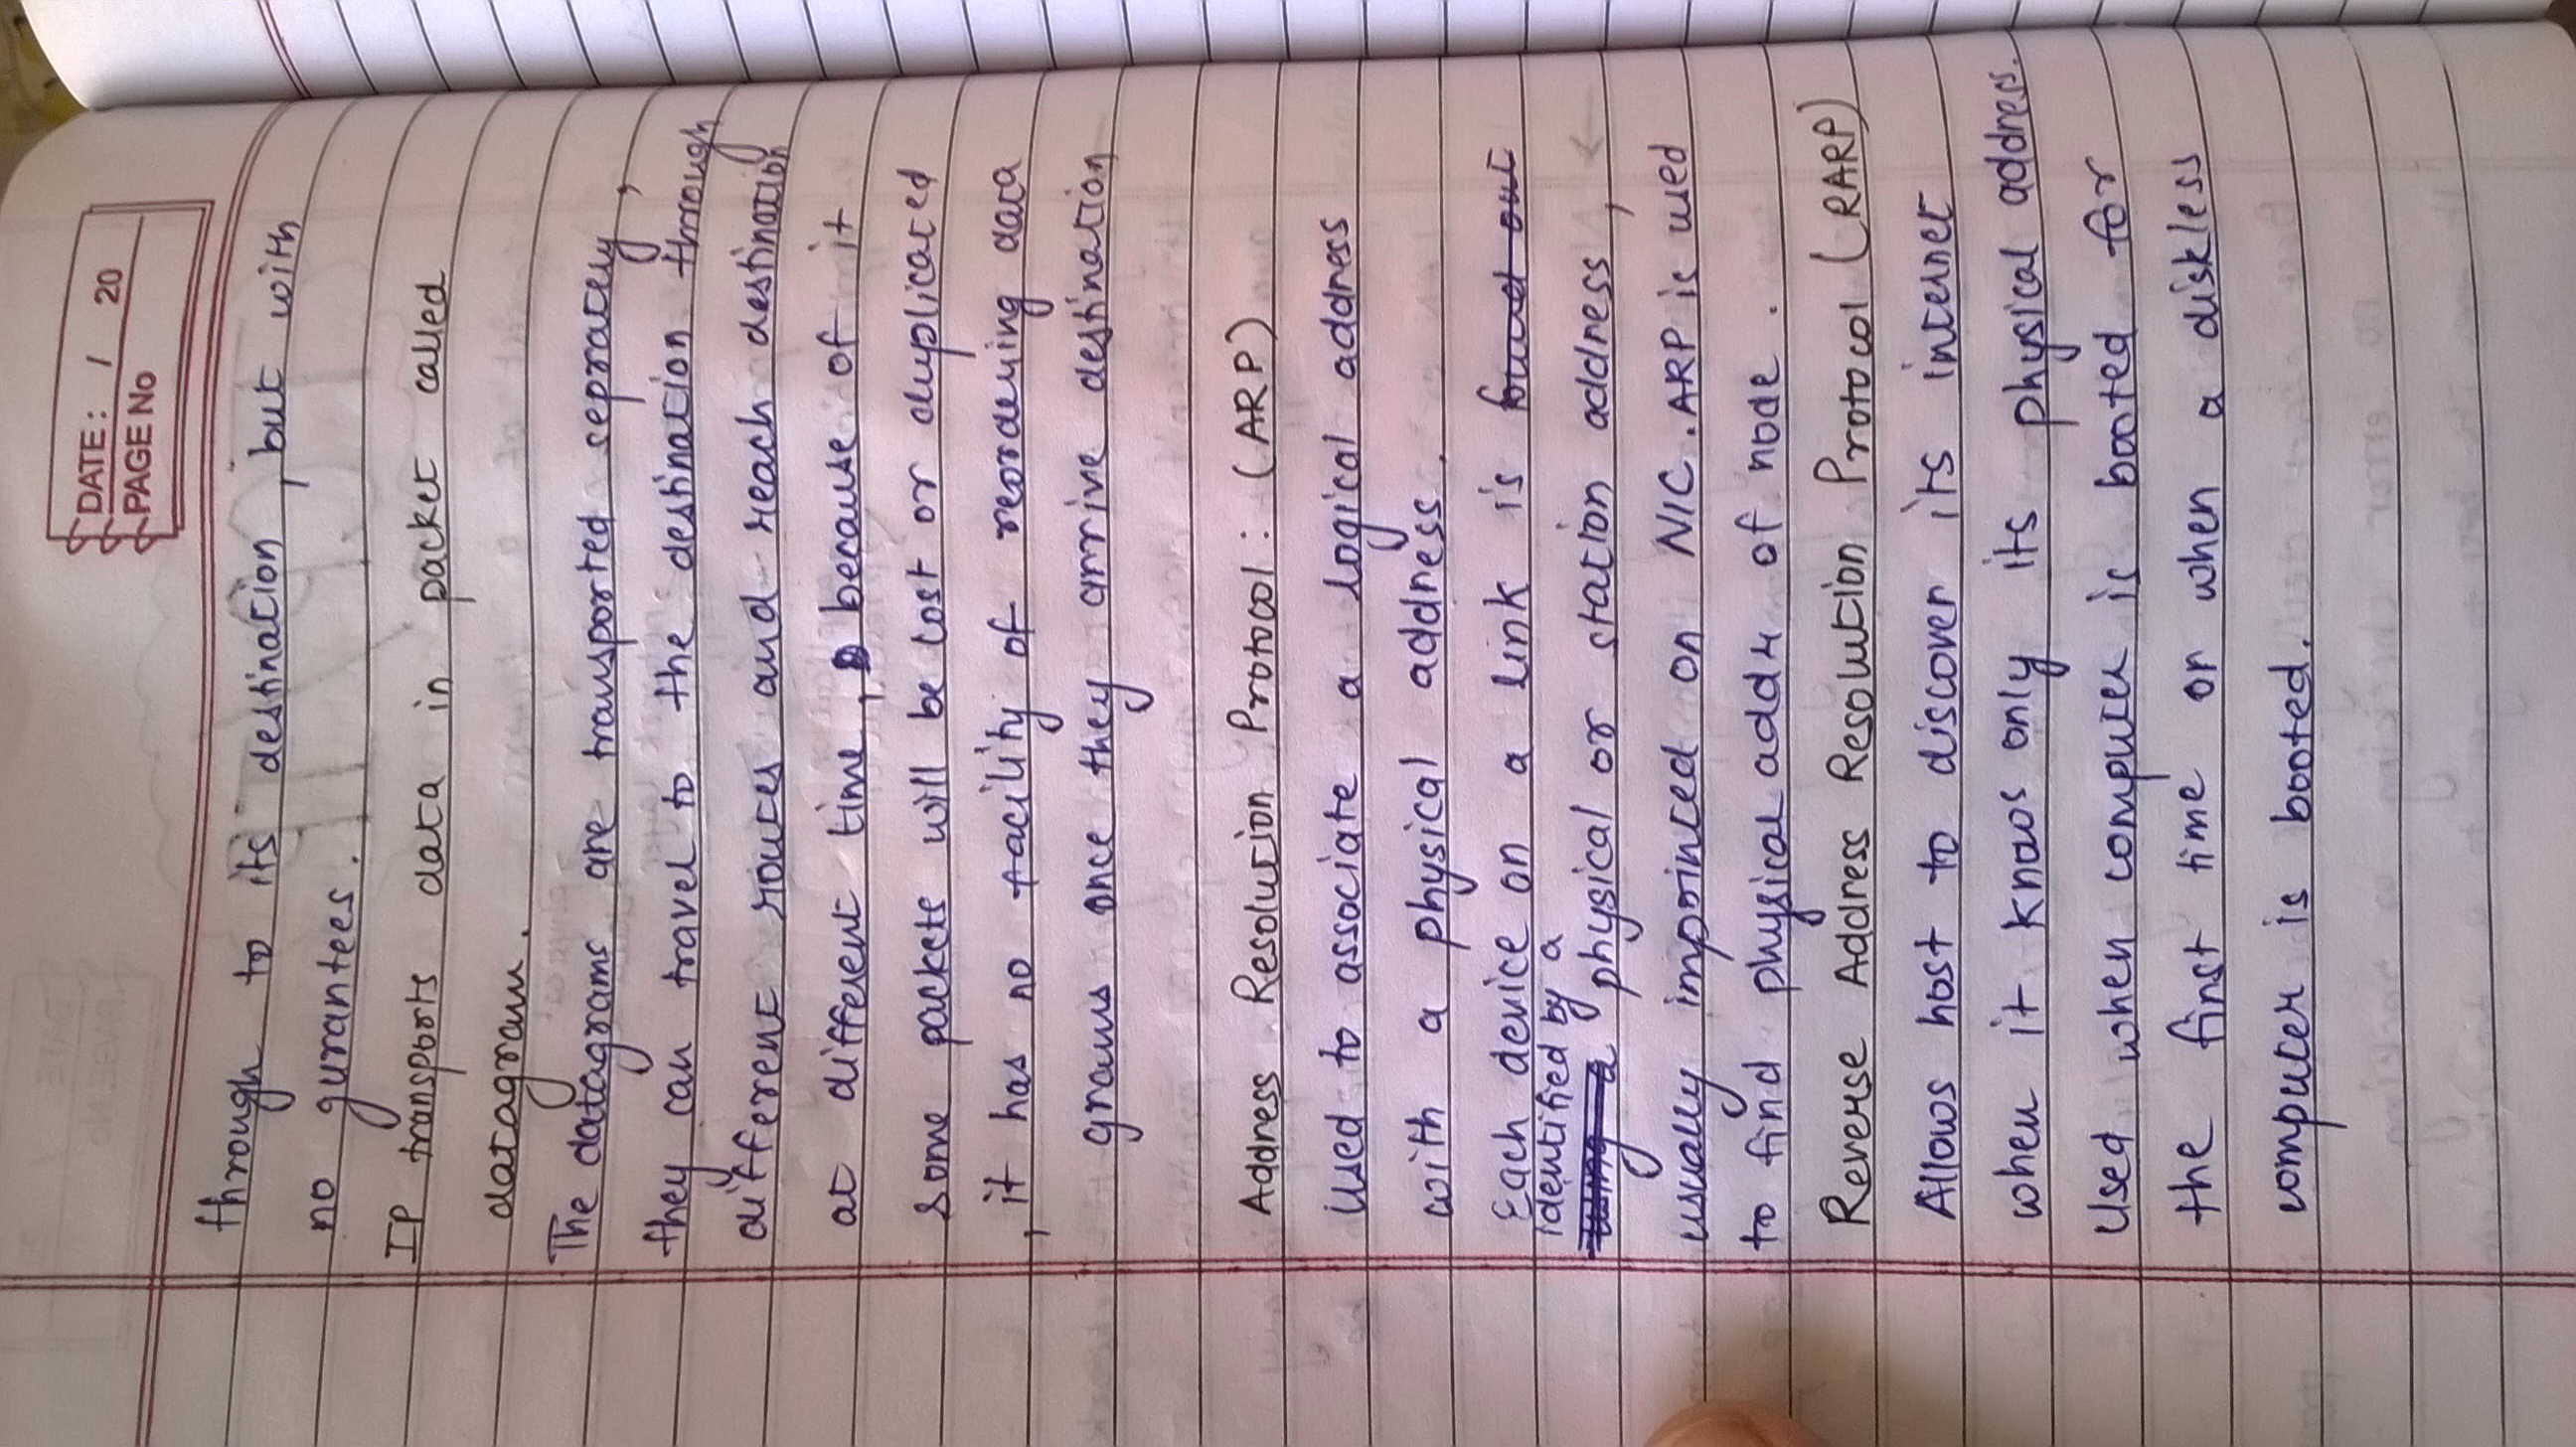 DATE: / 20
PAGE No
through to its destination, but with
no gurantees.
IP transports data in packet called
datagram.
The datagrams are transported seprately,
they can travel to the destination through
different routes and reach destination
at different time, because of it
some packets will be lost or duplicated
, it has no facility of reordering data
grams once they arrive destination
Address Resolution Protocol: (ARP)
Used to associate a logical address
with a physical address.
Each device on a link is found out
identified by a
using a physical or station address,
usually imprinted on NIC. ARP is used
to find physical addr of node.
Reverse Address Resolution Protocol (RARP)
Allows host to discover its internet
when it knaos only its physical address.
Used when computer is booted for
the first time or when a diskless
computer is booted.